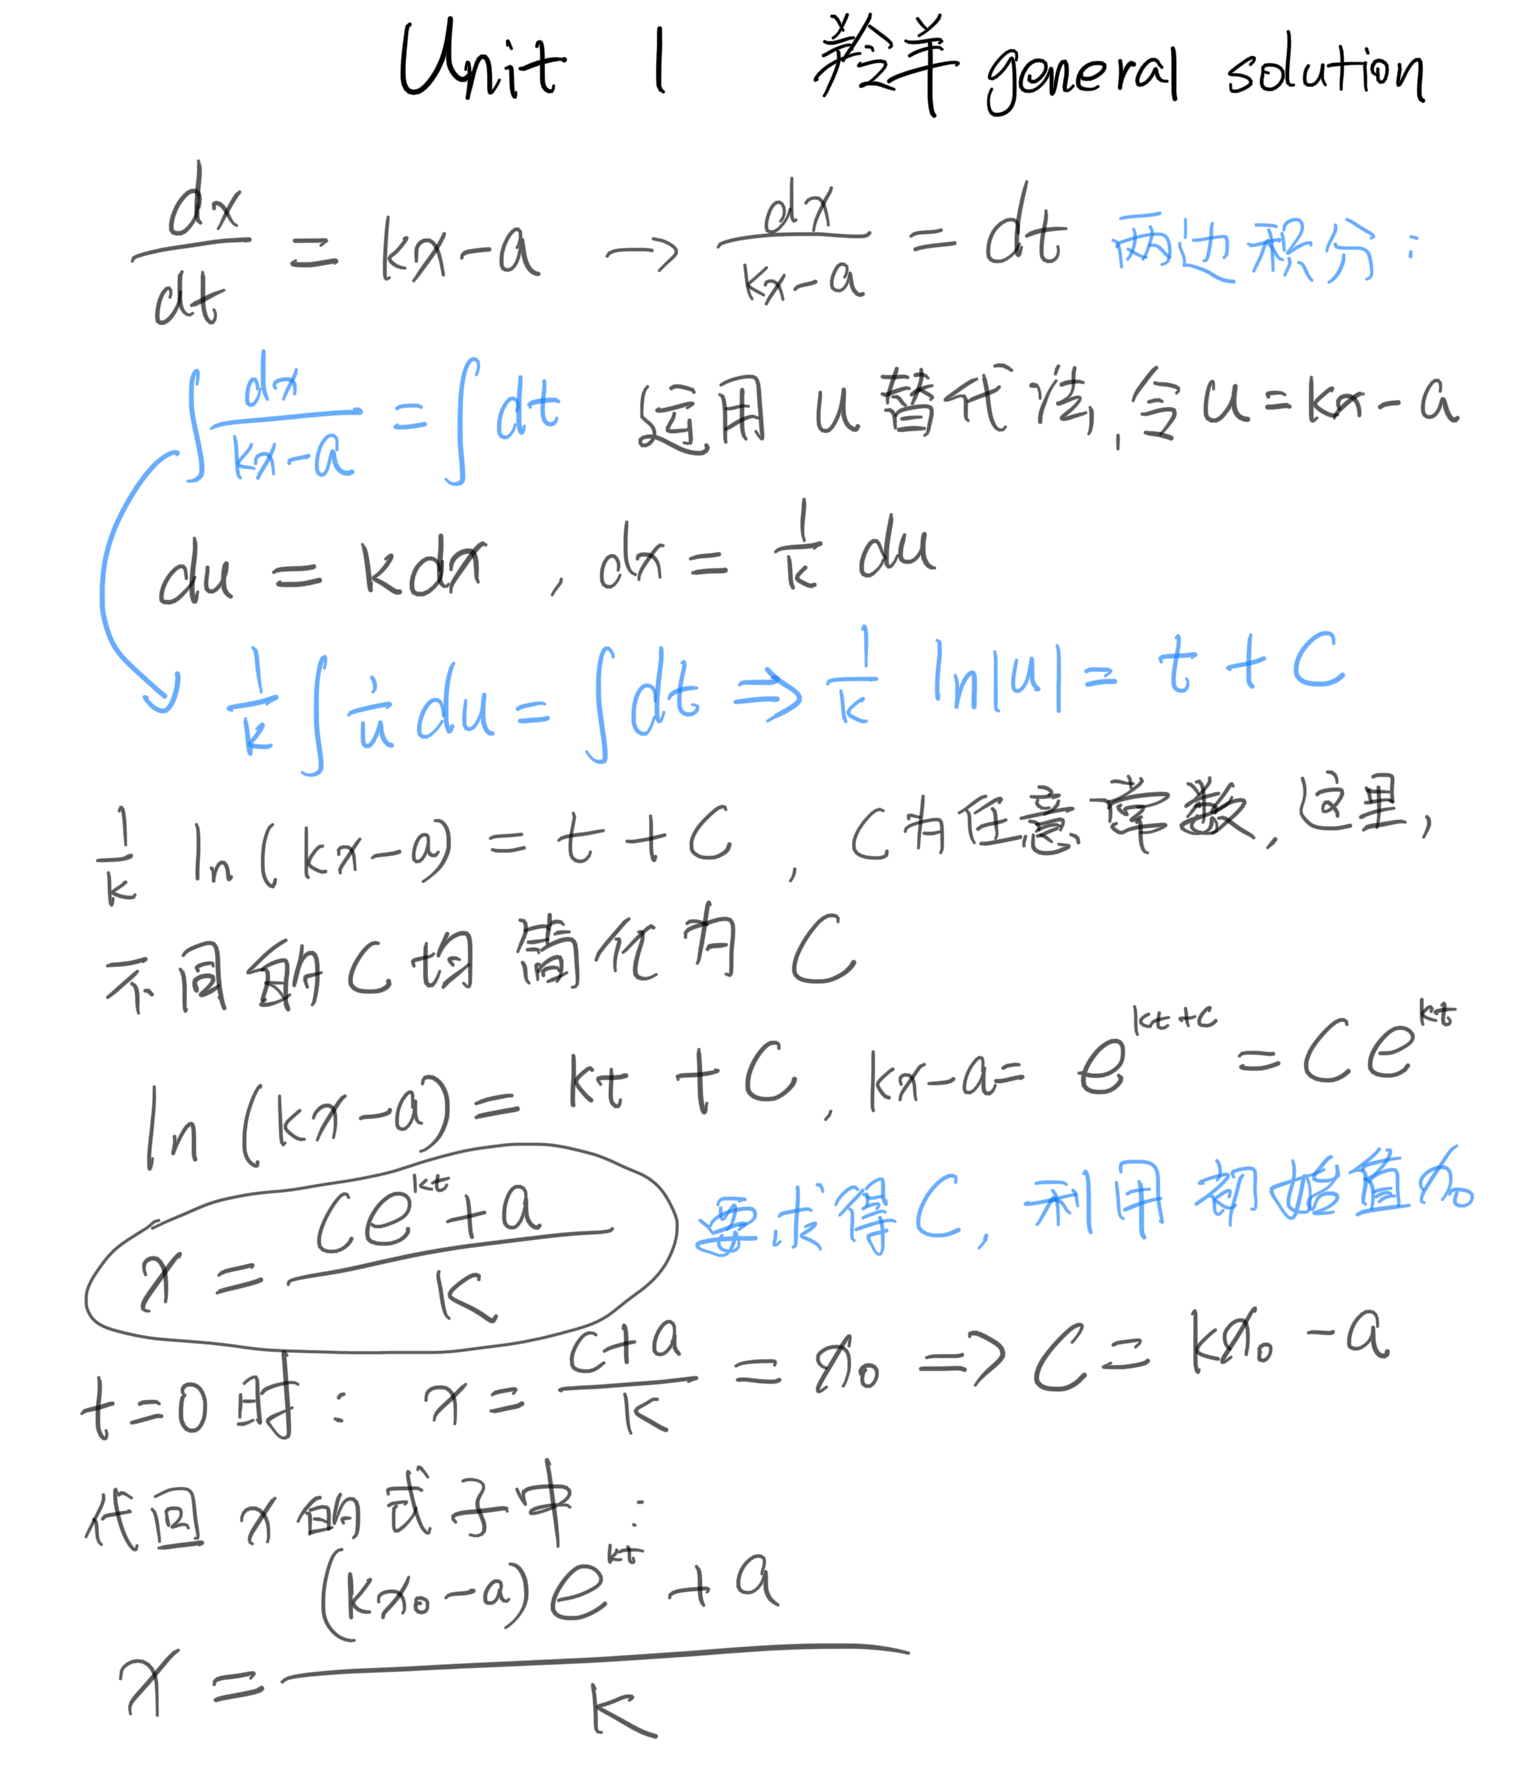 Unit 1 羚羊 general solution
dx/dt = kx-a → dx/(kx-a) = dt 两边积分:
∫dx/(kx-a) = ∫dt 运用 u 替代法, 令 u = kx-a
du = kdx , dx = 1/k du
1/k ∫ 1/u du = ∫dt ⇒ 1/k ln|u| = t + C
1/k ln(kx-a) = t + C , C为任意常数, 这里,
不同的C均简化为 C
ln (kx-a) = kt + C, kx-a = e^(kt+c) = Ce^(kt)
x = (Ce^(kt)+a)/k 要求得C, 利用初始值x₀
t=0时: x = (C+a)/k = x₀ => C = kx₀ - a
代回 x 的式子中:
x = ((kx₀-a)e^(kt) + a)/k